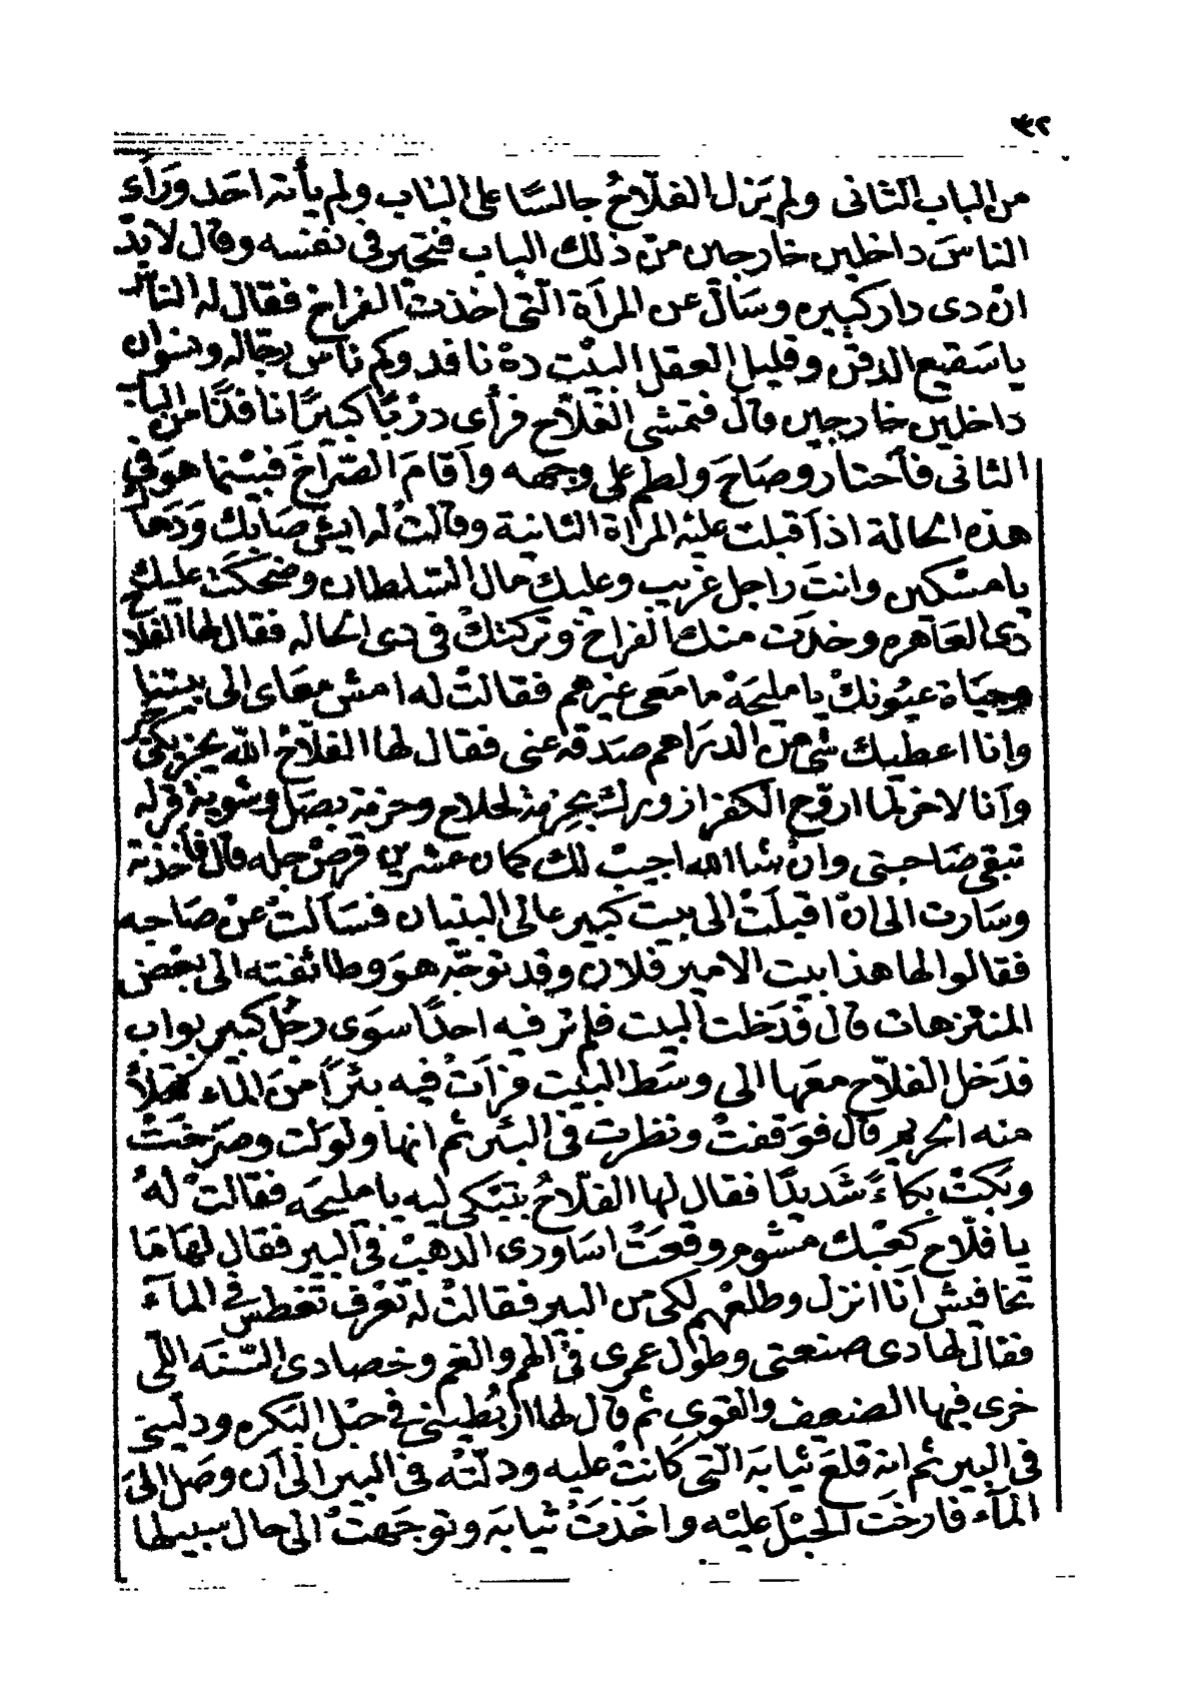 ٤٢
من الباب الثانى ولم يَزل الفلّاحُ جالسًا على الباب ولم يأته احَد ورَآء
الناسَ داخلين خارجين منْ ذلك الباب فتحير فى نفسه وقال لابدّ
انّ دى دار كبيره وسَال عن المرآة الّتى اخذتْ الفراخ فقال له الناسُ
يا سَقيع الدقن وقليل العقل البيْت دهْ نافد وكم ناس رجاله ونسوان
داخلين خارجين قال فتمشى الفلّاح فرأى درْبًا كبيرًا نافدًا من الباب
الثانى فآحتار وصَاحَ ولطم على وجهه وآقامَ الصّراخَ فبيْنما هوَ فى
هذه الحالة اذآ قبلت عليْه المرْاة الثانية وقالتْ له ايشْ صَابك ودَهاك
يا مسْكين وانتَ راجل غريب وعليك مال السّلطان وضحكَتْ عليك
دى العَاهره وخدَت منك الفراخ وتركتكْ فى دى الحاله فقال لها الفلاح
وحيَاة عيُونكْ يا مليحَهْ ما مَعى غيرهم فقالتْ له امش معَاى الى بيتنا
وانا اعطيك شى من الدرَاهم صَدقه عنى فقال لها الفلّاحُ اللّه يجزيكى خير
وآنا لاخر لما اروّح الكفر ازورك بحزمة لحلاح وحزمة بصَل وشوية فرله
تبقى صَاحبتى وانْ شا الله اجيبْ لك كمان عشرين قرصْ جله قال فأخذته
وسَارت الى انْ اقبلَتْ الى بيت كبير عالى البنيان فسَآلتْ عنْ صَاحبه
فقالوا لها هذا بيت الامير فلان وقد توجّه هوَ وطائفته الى بعْض
المنتزهات قال فدَخلت البيت فلم تر فيه احدًا سوَى رجُل كبير بواب
فدَخل الفلاّح معَها الى وسَط البيْت فرآتْ فيه بئرًا منَ المآء تملأُ
منه الحريم قال فوَقفتْ ونظرت فى البئر ثم انها ولولت وصَرخَتْ
وبَكتْ بكآءً شَديدًا فقال لها الفلّاحُ بتبَكى ليه يا مليحَه فقالتْ لهُ
يا فلّاح كعْبك مشوم وقعَتْ اسَاورى الدهبْ فى البير فقال لهَا مَا
تخافيش آنا انزل وطلعْهم لكى من البير فقالتْ له تعْرف تغطس فى المآء
فقال لها دى صنعتى وطوُل عمرى فى الهم والغم وخصا دى السّنَه اللّى
خرى فيها الضعيف والقوى ثم قال لها ارْبُطينى فى حبْل البَكره ودلّينى
فى البير ثم انه قلعَ ثيابَه الّتى كانتْ عليه ودلّتْه فى البير الى آن وصَل الىَ
المآء فارخَت الحبْلَ عليْه واخَذتْ ثيابَه وتوجَهتْ الى حال سبيلها